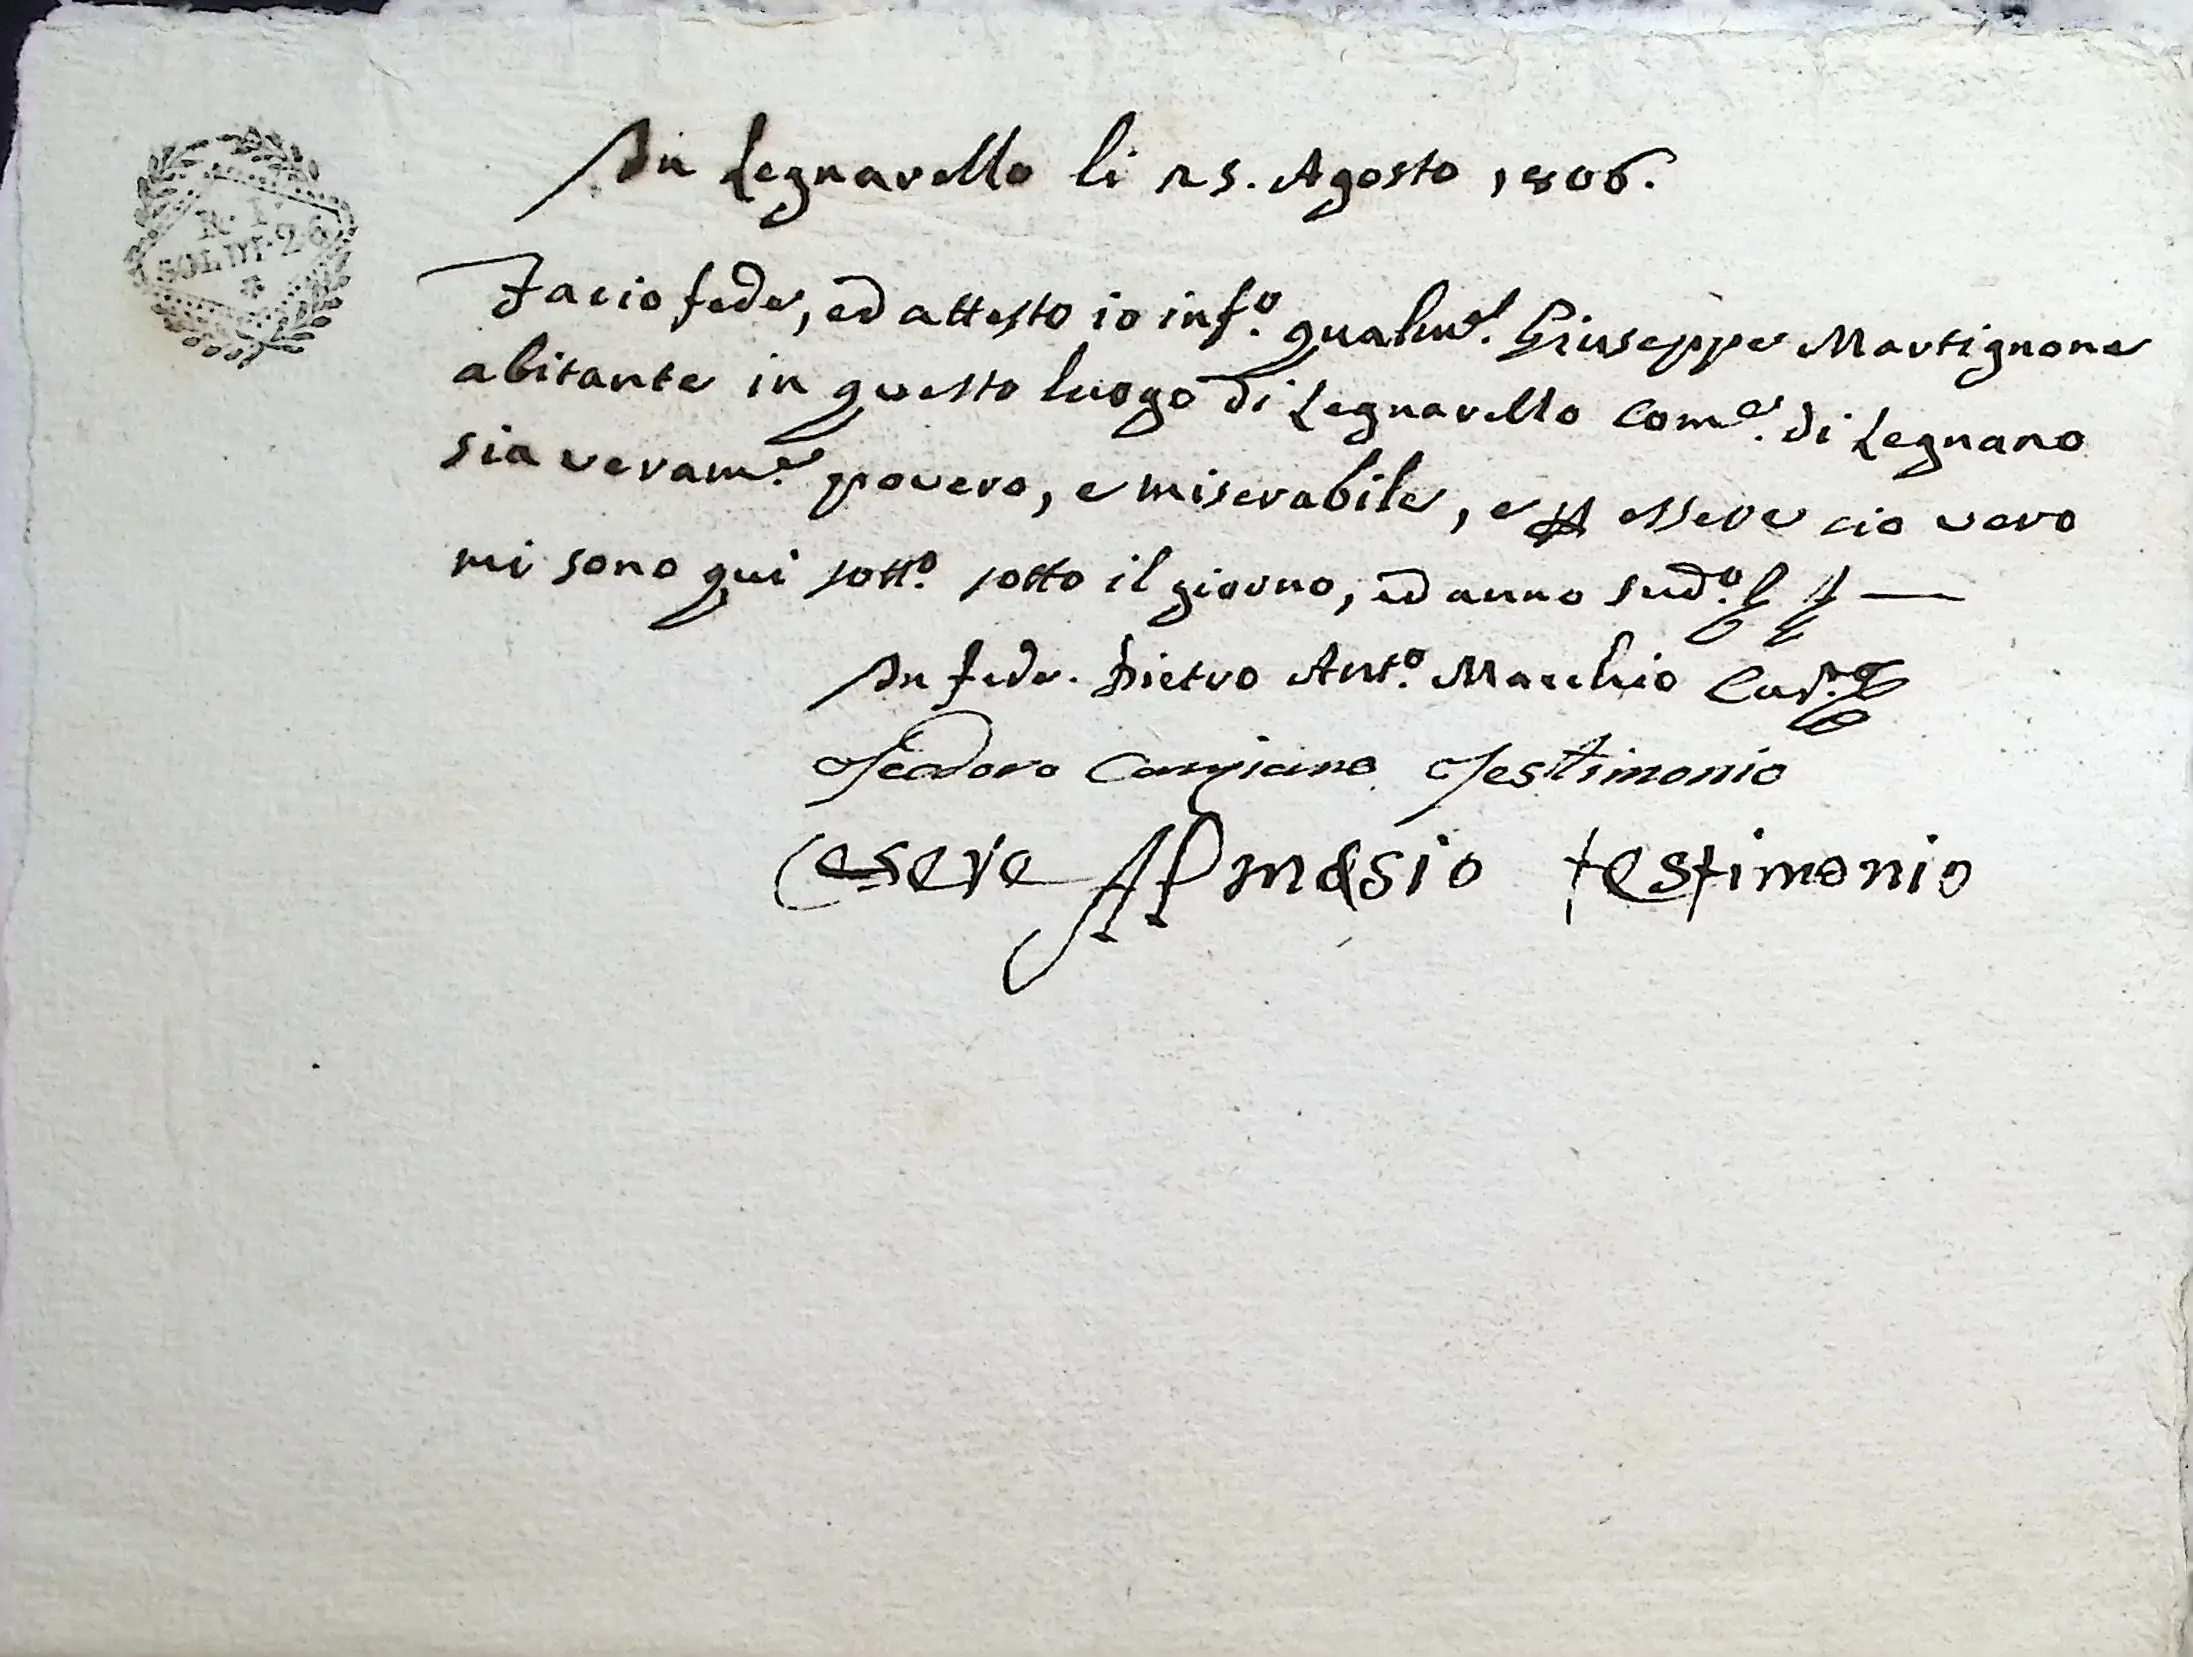 R. I.
SOLDI 26
In Legnarello li 25. Agosto 1806.
Facio fede, ed attesto io inf.o qualm.e Giuseppe Martignone
abitante in questo luogo di Legnarello Com.e di Legnano
sia veram.e povero, e miserabile, e p essere cio vero
mi sono qui sott.o sotto il giorno, ed anno sud.o
In fede. Pietro Ant.o Macchio
Teodoro Testimonio
testimonio